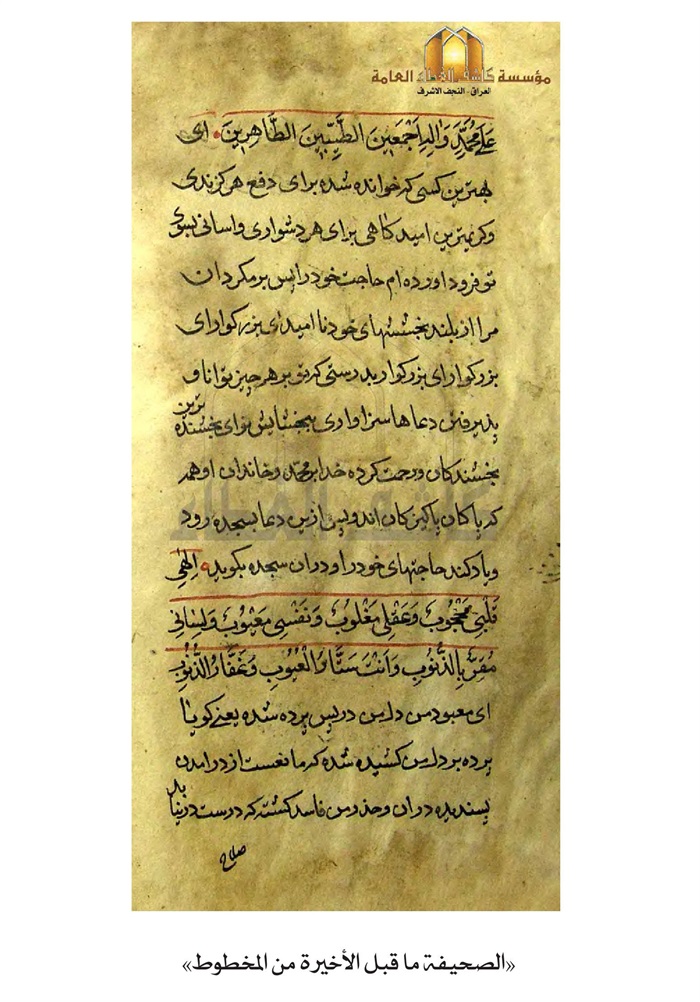 مؤسسة كاشف الغطاء العامة
العراق - النجف الاشرف
عَلى مُحَمَّدٍ وَالِهِ اَجْمَعينَ الطَّيِّبينَ الطَّاهِرينَ ای
بهترین کسی که خوانده شده برای دفع هر کزندی
وکریمترین امید کاهی برای هر دشواری واسانی بسوی
تو فرود اورده ام حاجت خود را پس بر مکردان
مرا از بلند بخششهای خود نا امید ای بزرکوار ای
بزرکوار ای بزرکوار بدرستی که تو بر هر چیز توانا و
پذیرفتن دعاها سزاواری ببخشایش برای بخشنده ترین
بخشندکان ورحمت کرده خدا بر محمد وخاندان او همه
که پاکان پاکیزه کان اند وپس ازین دعا بسجده رود
ویاد کند حاجتهای خود را ودران سجده بکوید اِلهی
قَلْبی مَحْجُوبٌ وَعَقْلی مَغْلُوبٌ وَنَفْسی مَعْیُوبٌ وَلِسانی
مُقِرٌّ بِالذُّنُوبِ وَاَنْتَ سَتَّارُ الْعُیُوبِ وَغَفَّارُ الذُّنُوبِ
ای معبود من دل من در پس پرده شده یعنے کویا
پرده بر دل من کشیده شده که مانعست از درامدن
پسندیده دران وخرد من فاسد کشته که درست درنیابد
صلاح
«الصحيفة ما قبل الأخيرة من المخطوط»